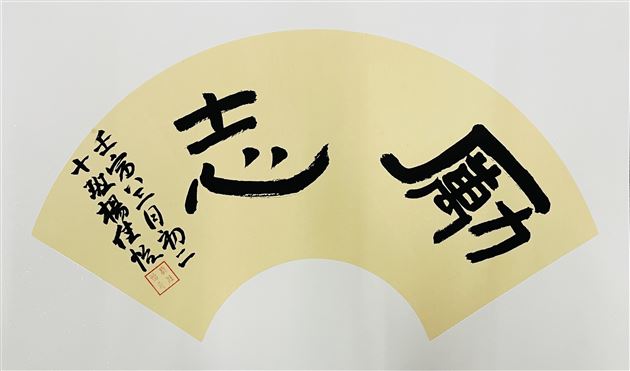 勵志
壬寅三月初二
十班楊佳怡